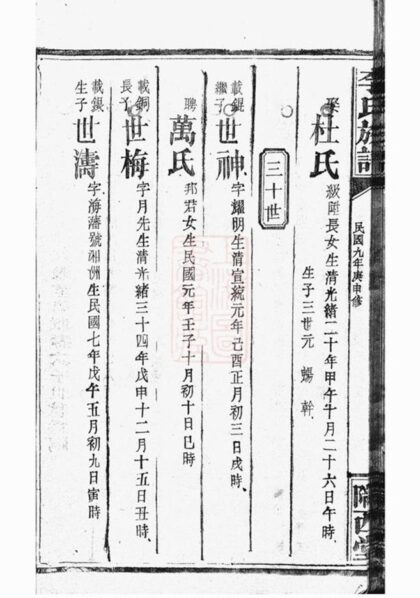 李氏族譜
民國九年庚申修
隴西堂
娶杜氏 級陞長女生清光緒二十年甲午午月二十六日午時
生子三世元 暢 幹
三十世
載錕繼子世神 字耀明生清宣統元年己酉正月初三日戌時
聘萬氏 邦君女生民國元年壬子十月初十日巳時
載銅長子世梅 字月先生清光緒三十四年戊申十二月十五日丑時
載銀生子世濤 字海藩號湘洲生民國七年戊午五月初九日寅時